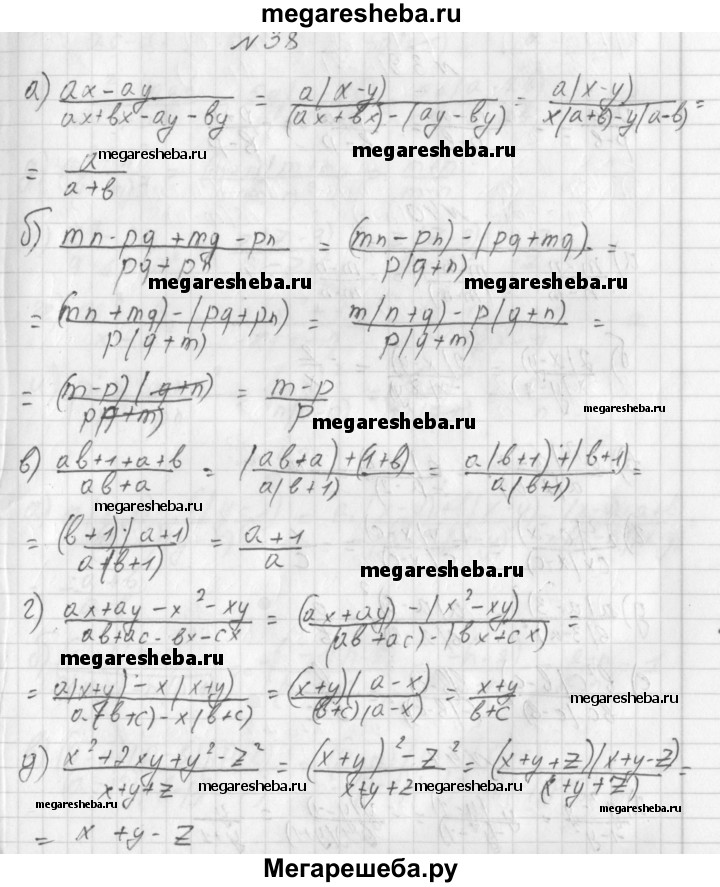 megaresheba.ru
№38
а) (ax-ay)/(ax+bx-ay-by) = a(x-y)/((ax+bx)-(ay-by)) = a(x-y)/(x(a+b)-y(a-b)) =
megaresheba.ru megaresheba.ru
= a/(a+b)
б) (mn-pq+mq-pn)/(pq+pn) = ((mn-pn)-(pq+mq))/(p(q+n)) =
megaresheba.ru megaresheba.ru
= ((mn+mq)-(pq+pn))/(p(q+m)) = (m(n+q)-p(q+n))/(p(q+m)) =
= ((m-p)(q+n))/(p(q+m)) = (m-p)/p
megaresheba.ru megaresheba.ru
в) (ab+1+a+b)/(ab+a) = ((ab+a)+(1+b))/(a(b+1)) = (a(b+1)+(b+1))/(a(b+1)) =
megaresheba.ru
= ((b+1)(a+1))/(a(b+1)) = (a+1)/a
megaresheba.ru
г) (ax+ay-x²-xy)/(ab+ac-bx-cx) = ((ax+ay)-(x²-xy))/((ab+ac)-(bx+cx)) =
megaresheba.ru
= (a(x+y)-x(x+y))/(a(b+c)-x(b+c)) = ((x+y)(a-x))/((b+c)(a-x)) = (x+y)/(b+c)
megaresheba.ru
д) (x²+2xy+y²-z²)/(x+y+z) = ((x+y)²-z²)/(x+y+z) = ((x+y+z)(x+y-z))/(x+y+z) =
megaresheba.ru megaresheba.ru megaresheba.ru
= x+y-z
Мегарешеба.ру